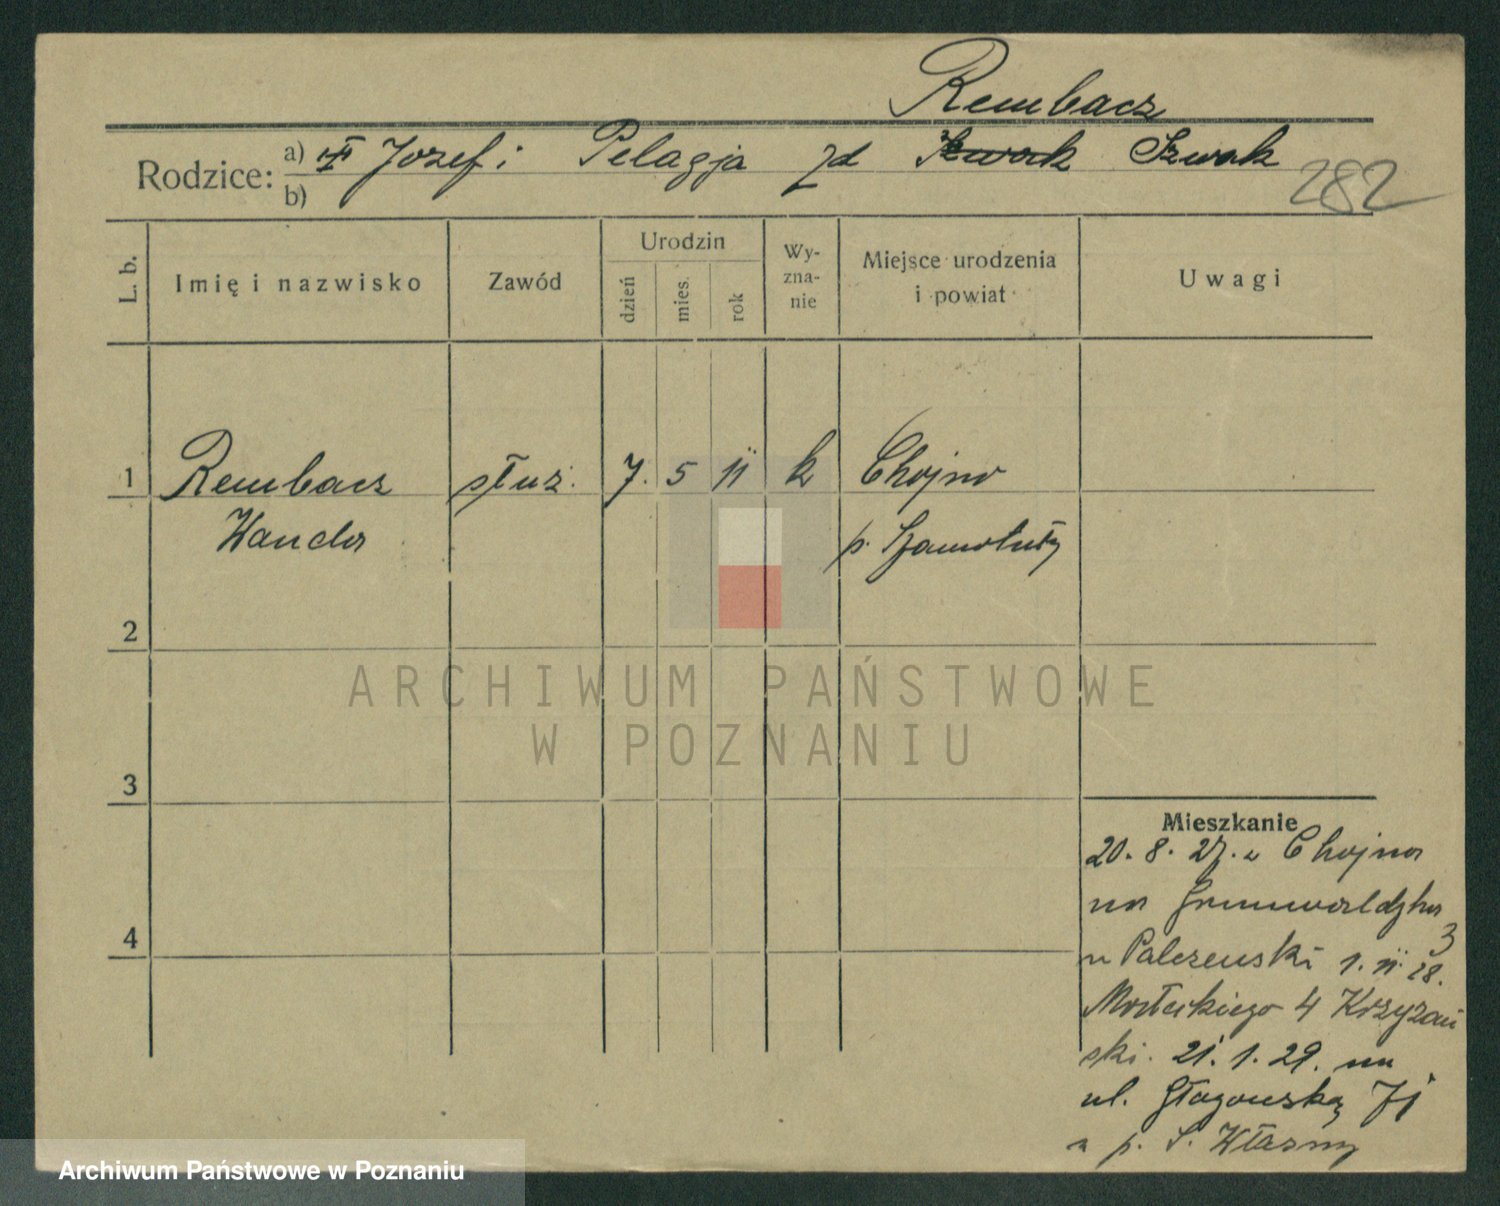 Rembacz
Rodzice: a) Józef i Pelagja zd Szwak Szwak
b)
282
L. b. Imię i nazwisko Zawód Urodzin dzień mies. rok Wyznanie Miejsce urodzenia i powiat Uwagi
1 Rembacz służ. 7. 5 11 k Chojno
Wanda p. Szamotuły
2
ARCHIWUM PAŃSTWOWE
W POZNANIU
3
Mieszkanie
20. 8. 27. z Chojna
na Grunwaldzka
3
u Palczewski 1. 11. 28.
4
Małeckiego 4 Krzyżań
ski. 21. 1. 29. na
ul. Głogowską 71
a p. S. Własny
Archiwum Państwowe w Poznaniu